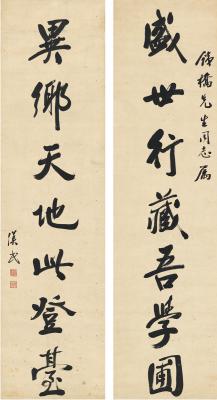 錦橋先生同志屬
盛世行藏吾學圃
異鄉天地此登臺
漢民